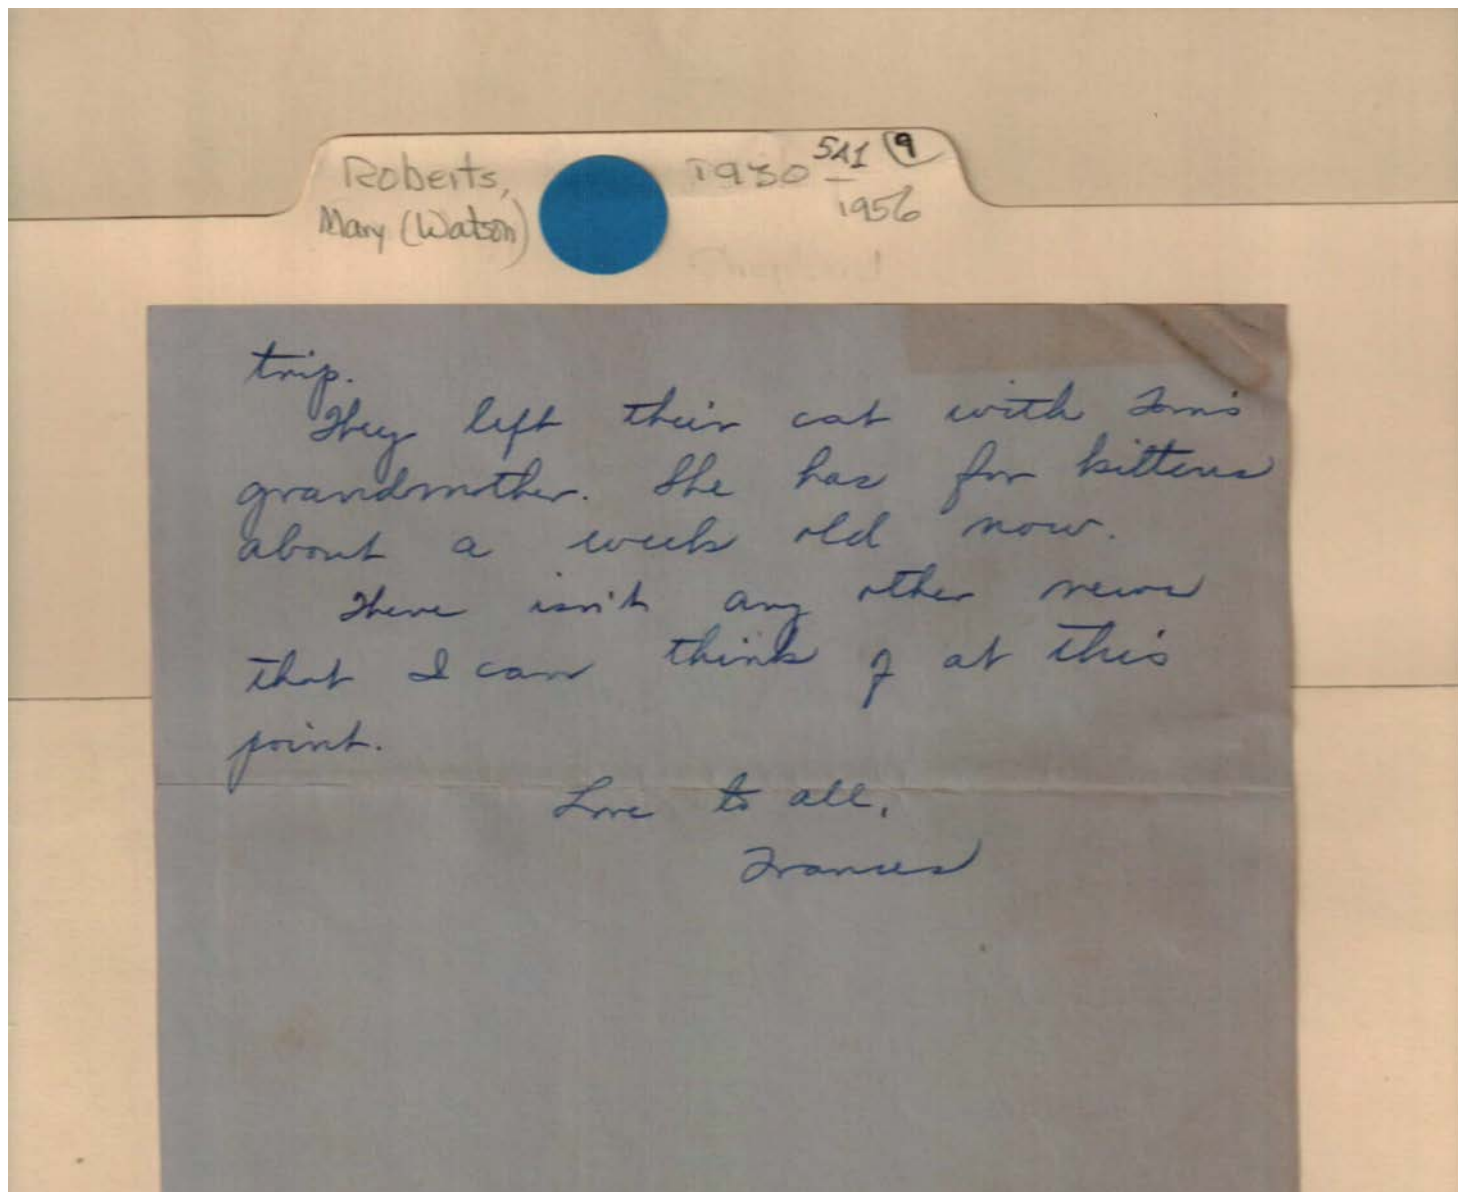 Roberts,
Mary (Watson)
1930 – 1956
5A1 9
trip.
They left their cat with Tom's
grandmother. She has for kittens
about a week old now.
There isn't any other news
that I can think of at this
point.
Love to all,
Frances